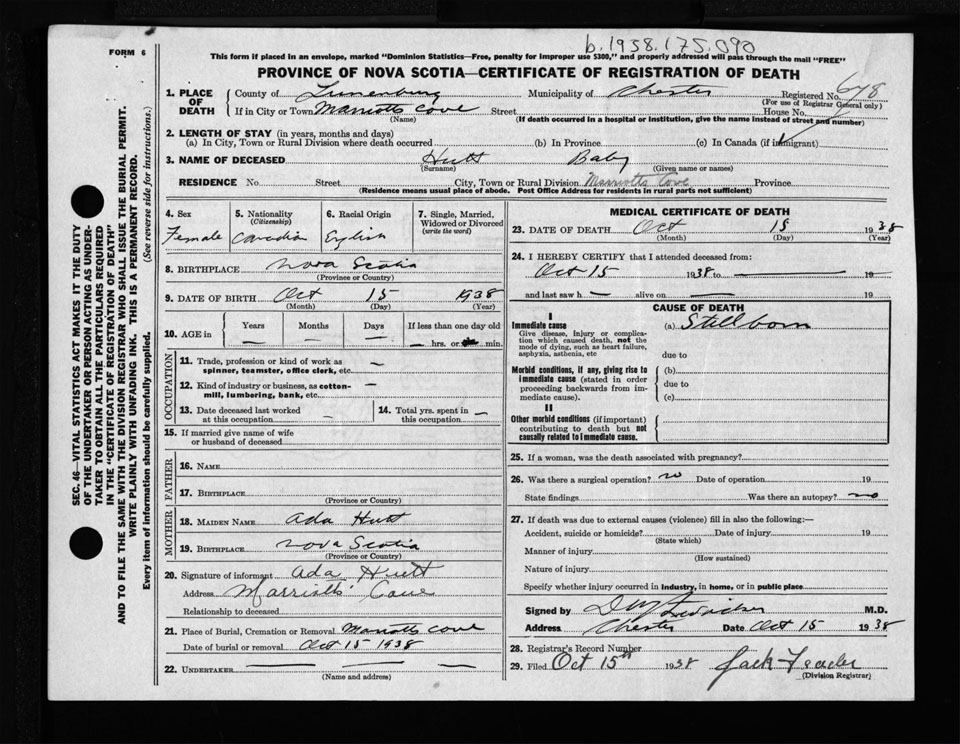 b.1938.175.090
FORM 6
This form if placed in an envelope, marked "Dominion Statistics—Free, penalty for improper use $300," and properly addressed will pass through the mail "FREE"
PROVINCE OF NOVA SCOTIA—CERTIFICATE OF REGISTRATION OF DEATH
1. PLACE OF DEATH County of Lunenburg Municipality of Chester Registered No. 678
(For use of Registrar General only)
If in City or Town Marriotts Cove Street House No.
(Name) (If death occurred in a hospital or institution, give the name instead of street and number)
2. LENGTH OF STAY (in years, months and days)
(a) In City, Town or Rural Division where death occurred (b) In Province (c) In Canada (if immigrant)
3. NAME OF DECEASED Hutt Baby
(Surname) (Given name or names)
RESIDENCE No. Street City, Town or Rural Division Marriotts Cove Province
(Residence means usual place of abode. Post Office Address for residents in rural parts not sufficient)
4. Sex 5. Nationality (Citizenship) 6. Racial Origin 7. Single, Married, Widowed or Divorced (write the word)
Female Canadian English
8. BIRTHPLACE Nova Scotia
(Province or Country)
9. DATE OF BIRTH Oct 15 1938
(Month) (Day) (Year)
10. AGE in Years Months Days If less than one day old
— — — — hrs. or min.
OCCUPATION
11. Trade, profession or kind of work as —
spinner, teamster, office clerk, etc.
12. Kind of industry or business, as cotton- —
mill, lumbering, bank, etc.
13. Date deceased last worked at this occupation — 14. Total yrs. spent in this occupation —
15. If married give name of wife
or husband of deceased
FATHER
16. NAME
17. BIRTHPLACE
(Province or Country)
MOTHER
18. MAIDEN NAME Ada Hutt
19. BIRTHPLACE Nova Scotia
(Province or Country)
20. Signature of informant Ada Hutt
Address Marriotts Cove
Relationship to deceased
21. Place of Burial, Cremation or Removal Marriotts Cove
Date of burial or removal Oct 15 1938
22. UNDERTAKER — — —
(Name and address)
MEDICAL CERTIFICATE OF DEATH
23. DATE OF DEATH Oct 15 1938
(Month) (Day) (Year)
24. I HEREBY CERTIFY that I attended deceased from:
Oct 15 1938 to — 19—
and last saw h — alive on — 19
CAUSE OF DEATH
I
Immediate cause (a) Stillborn
Give disease, injury or complication which caused death, not the mode of dying, such as heart failure, asphyxia, asthenia, etc
due to
Morbid conditions, if any, giving rise to immediate cause (stated in order proceeding backwards from immediate cause).
(b)
due to
(c)
II
Other morbid conditions (if important) contributing to death but not causally related to immediate cause.
25. If a woman, was the death associated with pregnancy?
26. Was there a surgical operation? no Date of operation 19
State findings Was there an autopsy? no
27. If death was due to external causes (violence) fill in also the following:—
Accident, suicide or homicide? Date of injury 19
(State which)
Manner of injury
(How sustained)
Nature of injury
Specify whether injury occurred in industry, in home, or in public place
Signed by M.D.
Address Chester Date Oct 15 1938
28. Registrar's Record Number
29. Filed Oct 15th 1938 Jack
(Division Registrar)
SEC. 46—VITAL STATISTICS ACT MAKES IT THE DUTY
OF THE UNDERTAKER OR PERSON ACTING AS UNDER-
TAKER TO OBTAIN ALL THE PARTICULARS REQUIRED
IN THE "CERTIFICATE OF REGISTRATION OF DEATH"
AND TO FILE THE SAME WITH THE DIVISION REGISTRAR WHO SHALL ISSUE THE BURIAL PERMIT.
WRITE PLAINLY WITH UNFADING INK. THIS IS A PERMANENT RECORD.
Every item of information should be carefully supplied. (See reverse side for instructions.)